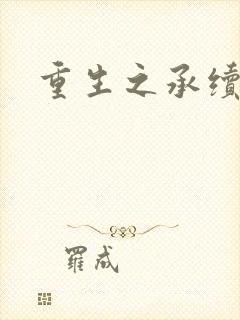 重生之承续
羅成